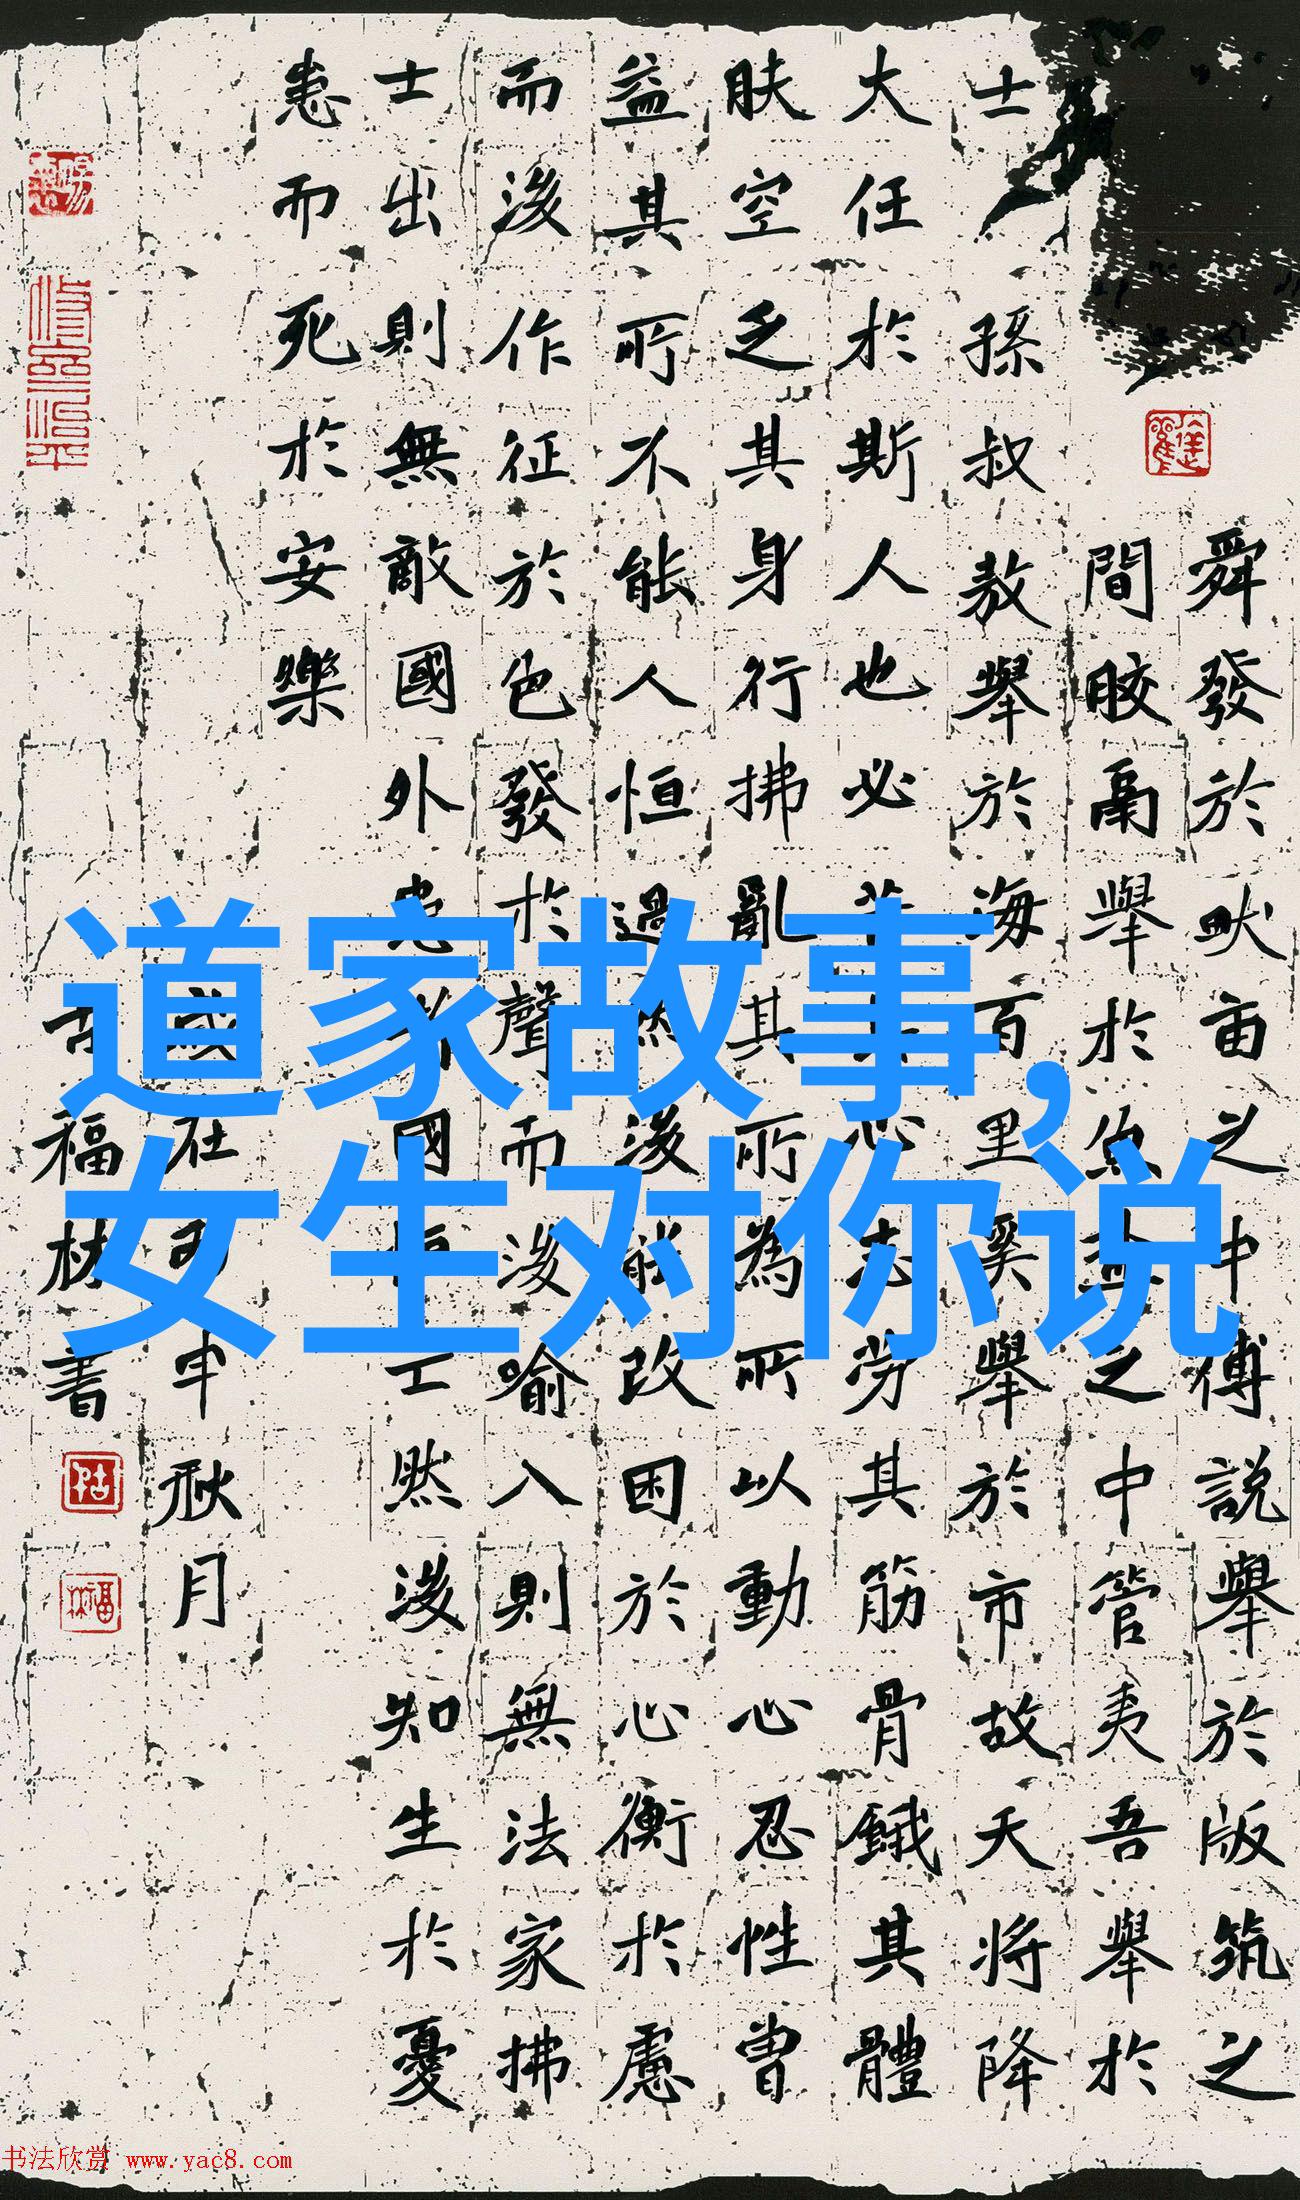 舜發於畎亩之中傅說舉於版筑之
間胶鬲舉於魚鹽之中管夷吾舉於
士孫叔敖舉於海百里奚舉於市故天將降
大任於斯人也必苦其心志勞其筋骨餓其體
肤空乏其身行拂亂其所為所以動心忍性曾
益其所不能人恒過然後能改困於心衡於慮
而後作征於色發於聲而後喻入則無法家拂
士出則無敵國外患者國恒亡然後知生於憂
患而死於安樂
歲在丙申秋月
古福林書
道家故事,
女生对你说
书法欣赏 www.yac8.com